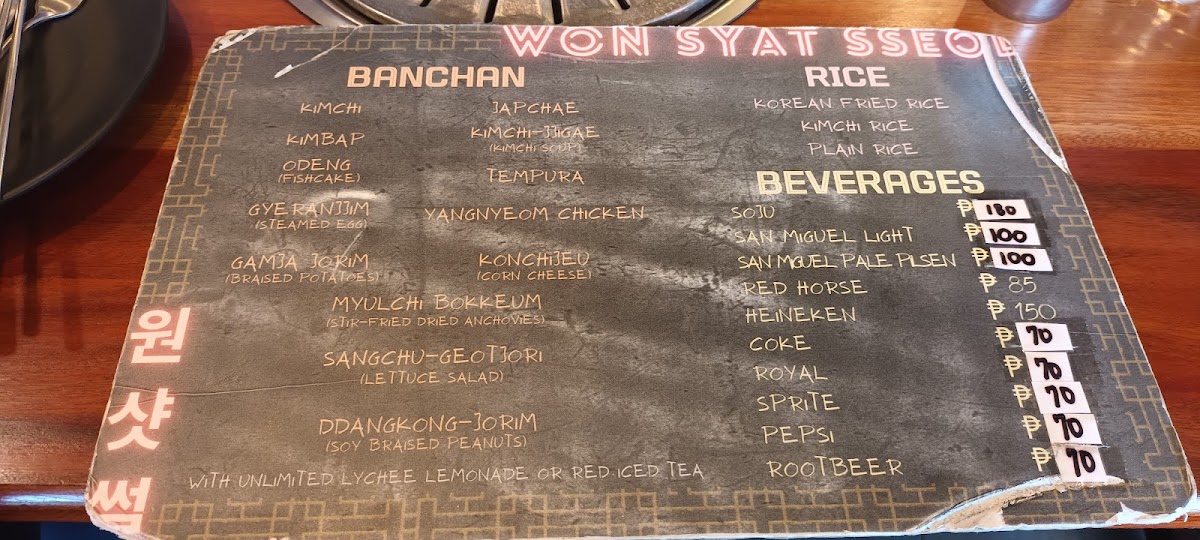 WON SYAT SSEOL
BANCHAN
KIMCHI
JAPCHAE
KIMBAP
KIMCHI-JJIGAE
(KIMCHI SOUP)
ODENG
(FISHCAKE)
TEMPURA
GYERANJJIM
(STEAMED EGG)
YANGNYEOM CHICKEN
GAMJA JORIM
(BRAISED POTATOES)
KONCHIJEU
(CORN CHEESE)
MYULCHI BOKKEUM
(STIR-FRIED DRIED ANCHOVIES)
SANGCHU-GEOTJORI
(LETTUCE SALAD)
DDANGKONG-JORIM
(SOY BRAISED PEANUTS)
WITH UNLIMITED LYCHEE LEMONADE OR RED ICED TEA
RICE
KOREAN FRIED RICE
KIMCHI RICE
PLAIN RICE
BEVERAGES
SOJU ₱ 180
SAN MIGUEL LIGHT ₱ 100
SAN MIGUEL PALE PILSEN ₱ 100
RED HORSE ₱ 85
HEINEKEN ₱ 150
COKE ₱ 70
ROYAL ₱ 70
SPRITE ₱ 70
PEPSI ₱ 70
ROOTBEER ₱ 70
원
샷
썰